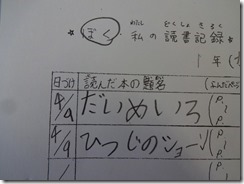 めい どくしょ きろく
* ぼく 私の読書記録 *
1年(
日づけ 読んだ本の題名 (よんだページ
4/9 だいめいろ (P. 1
4/9 ひつじのショーン (P. 1 P.